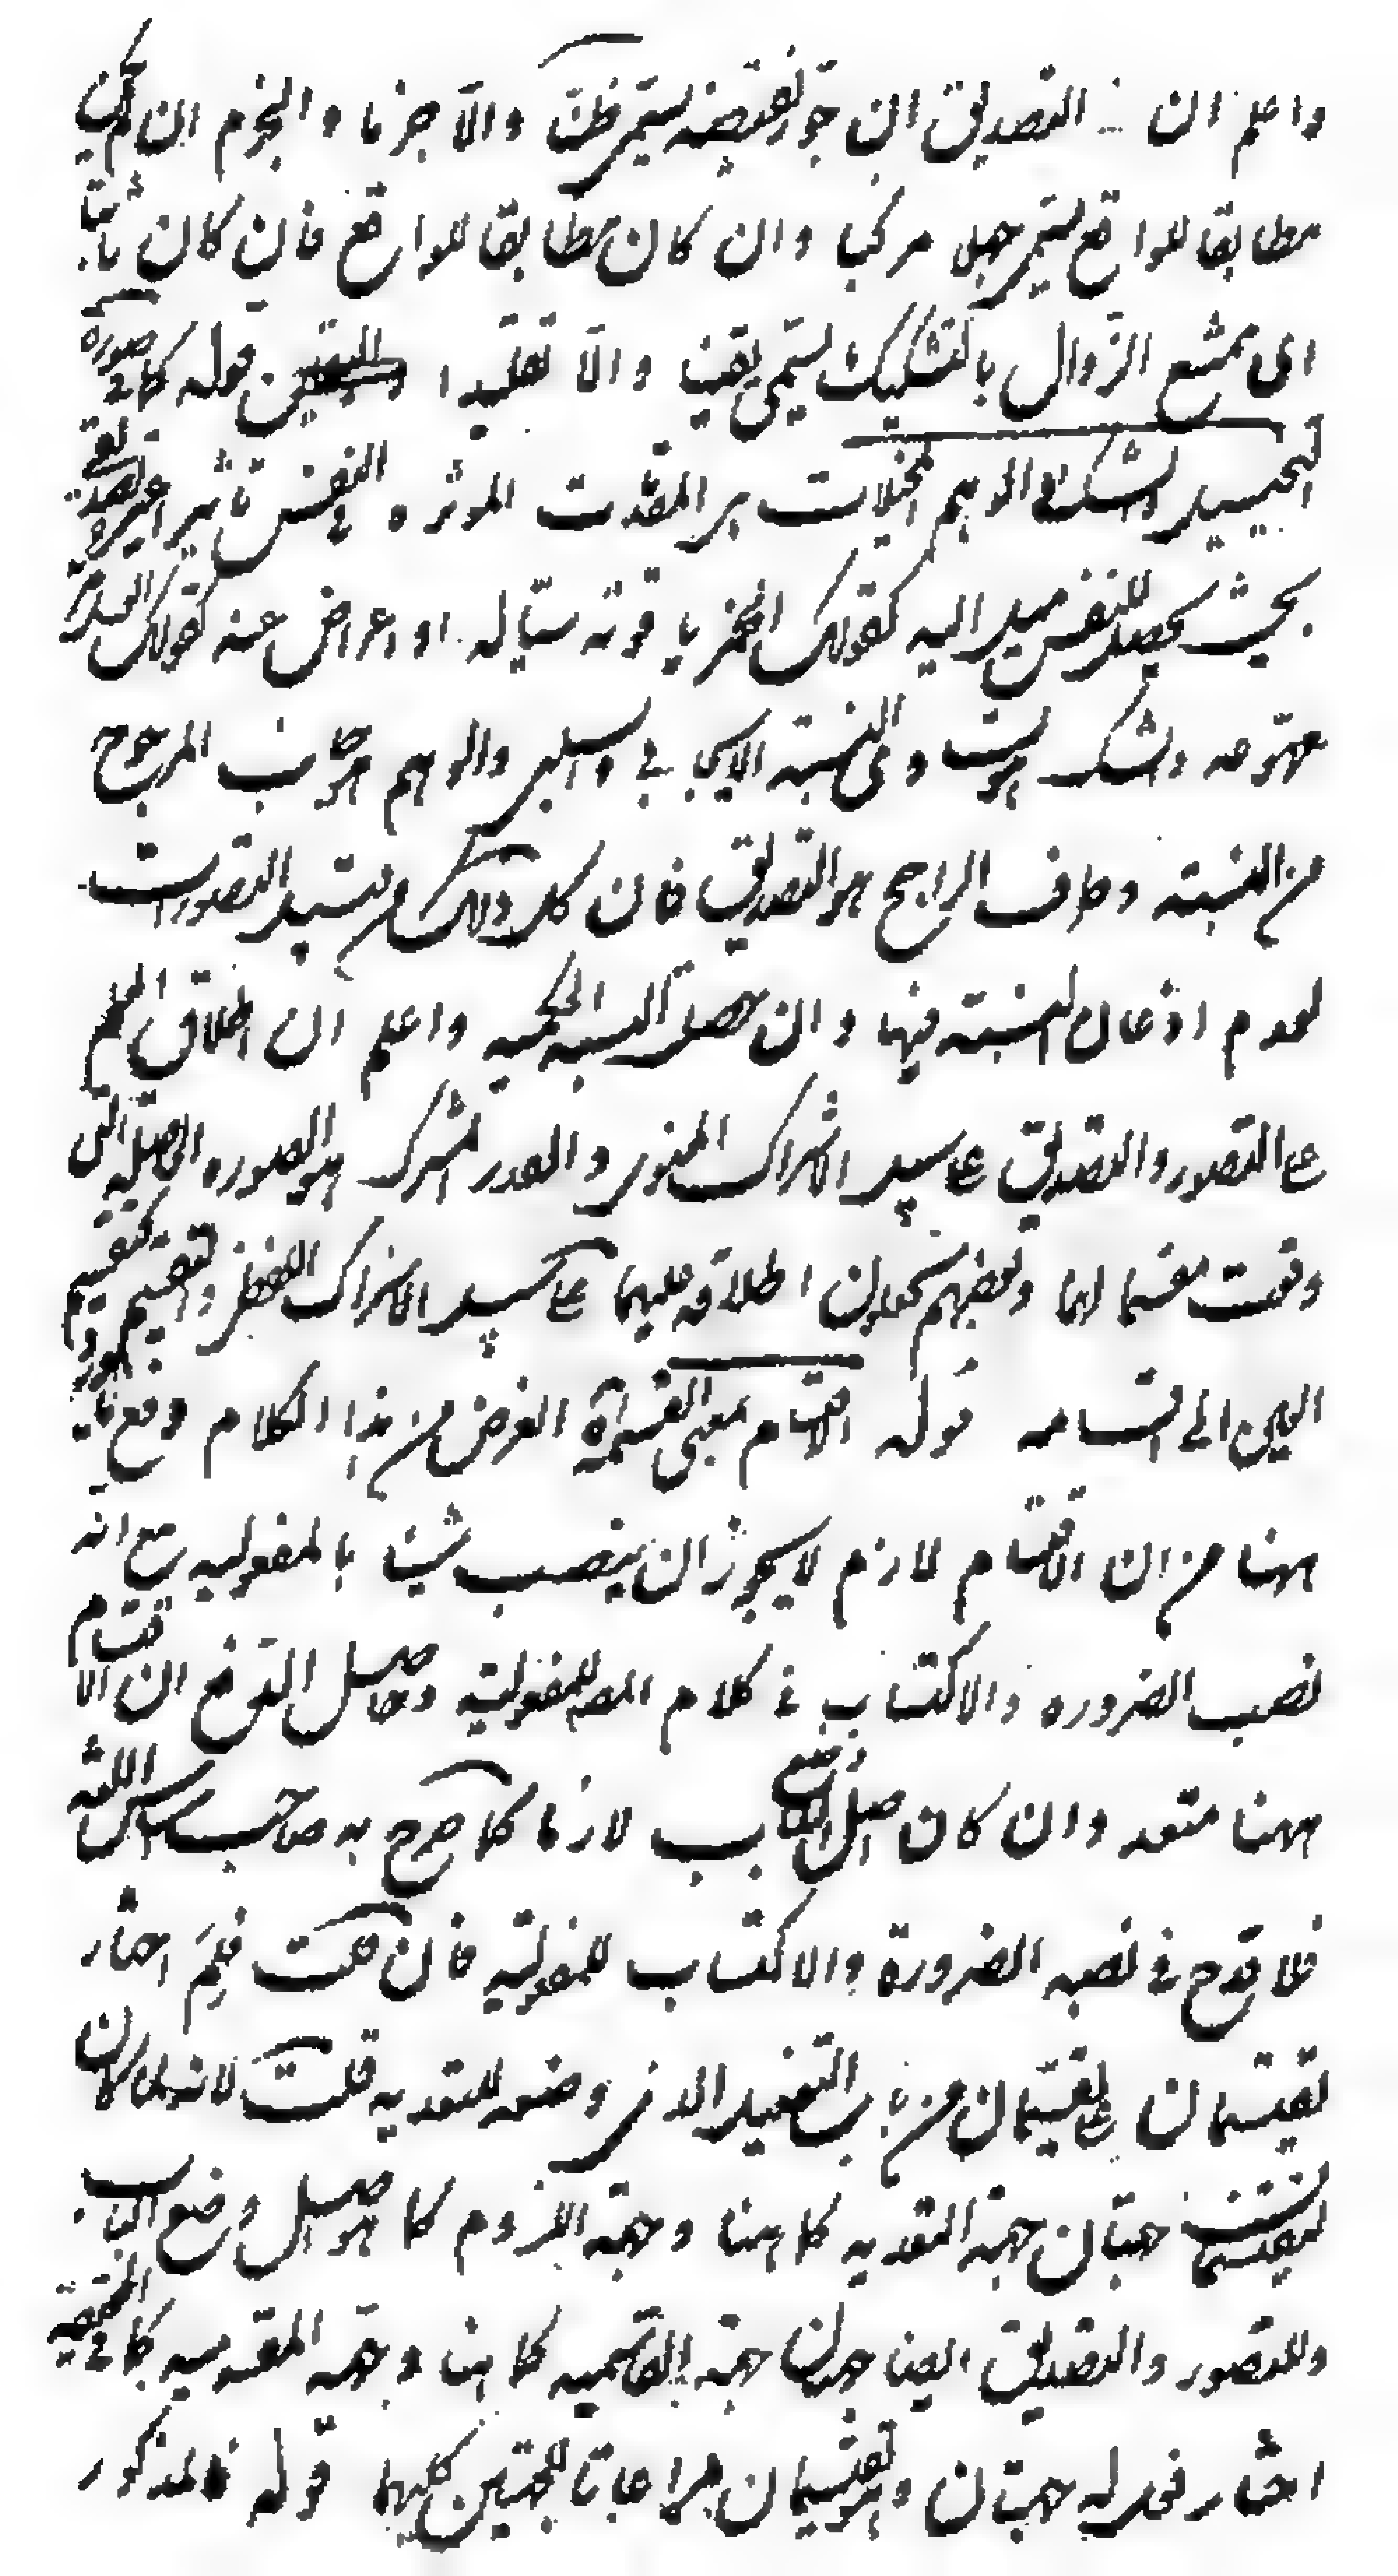 واعلم ان التصديق ان جوز نقيضه يسمى ظنا والا جزما والجزم ان لم يكن
مطابقا للواقع يسمى جهلا مركبا وان كان مطابقا للواقع فان كان ثابتا
اى ممتنع الزوال بالتشكيك يسمى يقينا والا تقليدا قوله كما فى صورة
التخييل والشك والوهم المخيلات هى المقدمات المؤثرة فى النفس تاثيرا
بحيث يحصل للنفس ميل اليه كقولك الخمر ياقوتة سيالة او اعراض عنه كقولك العسل
مهوعة والشك هو تساوى النسبة الايجابى والسلبى والوهم هو جانب المرجوح
من النسبة وطرف الراجح هو التصديق فان كل ذلك من قبيل التصورات
لعدم اذعان النسبة فيها وان حصل النسبة الحكمية واعلم ان اطلاق العلم
على التصور والتصديق على سبيل الاشتراك المعنوى والقدر المشترك هو الصورة الحاصلة التى
وقعت مقسما لهما وبعضهم يجعلون اطلاقه عليهما على سبيل الاشتراك اللفظى وتقسيمه كتقسيم
العين الى اقسامه قوله اقتسام بمعنى القسمة الغرض من هذا الكلام دفع ما يورد
ههنا من ان الاقتسام لازم لا يجوز ان ينصب شيئا بالمفعولية مع انه
نصب الضرورة والاكتساب فى كلام المص للمفعولية وحاصل الدفع ان الاقتسام
ههنا متعد وان كان اصل وضع الباب لازما كما صرح به صاحب اساس اللغة
فلا قدح فى نصبه الضرورة والاكتساب للمفعولية فان قلت فلم اختار
يقتسمان على يقسمان من باب التفعيل الذى وضعه للتعدية قلت لانه لما كان
ليقتسمان جهتان جهة التعدية كما ههنا وجهة اللزوم كما هو اصل وضع الباب
وللتصور والتصديق ايضا جهتان جهة القاسمية كما هنا وجهة المقسمية كما فى الحقيقة
اختار فعلا له جهتان وهو يقتسمان مراعاتا للجهتين كليهما قوله فالمذكور